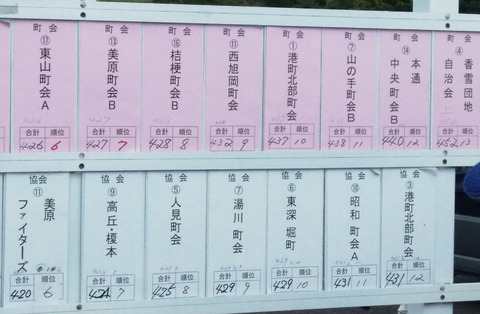 町会 ⑰ 東山町会A 合計 順位 426 6
町会 ⑬ 美原町会B 合計 順位 427 7
町会 ⑯ 桔梗町会B 合計 順位 428 8
町会 ⑪ 西旭岡町会 合計 順位 432 9
町会 ① 港町北部町会 合計 順位 437 10
町会 ⑦ 山の手町会B 合計 順位 438 11
町会 ⑭ 本通中央町会B 合計 順位 440 12
町会 ④ 香雪団地自治会 合計 順位 452 13
協会 ⑪ 美原ファイターズ 合計 順位 420 6
協会 ⑨ 高丘・榎本 合計 順位 424 7
協会 ⑤ 人見町会 合計 順位 425 8
協会 ⑦ 湯川町会 合計 順位 429 9
協会 ⑥ 東深堀町 合計 順位 429 10
協会 ⑩ 昭和町会A 合計 順位 431 11
協会 ③ 港町北部町会 合計 順位 431 12